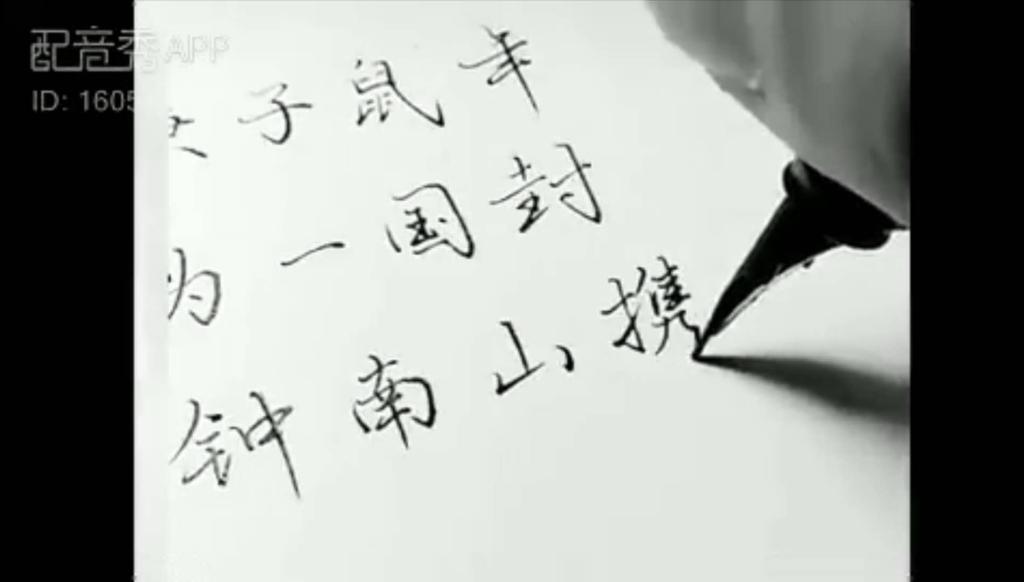 配音秀APP
ID: 1605
子鼠年
为一国封
钟南山携